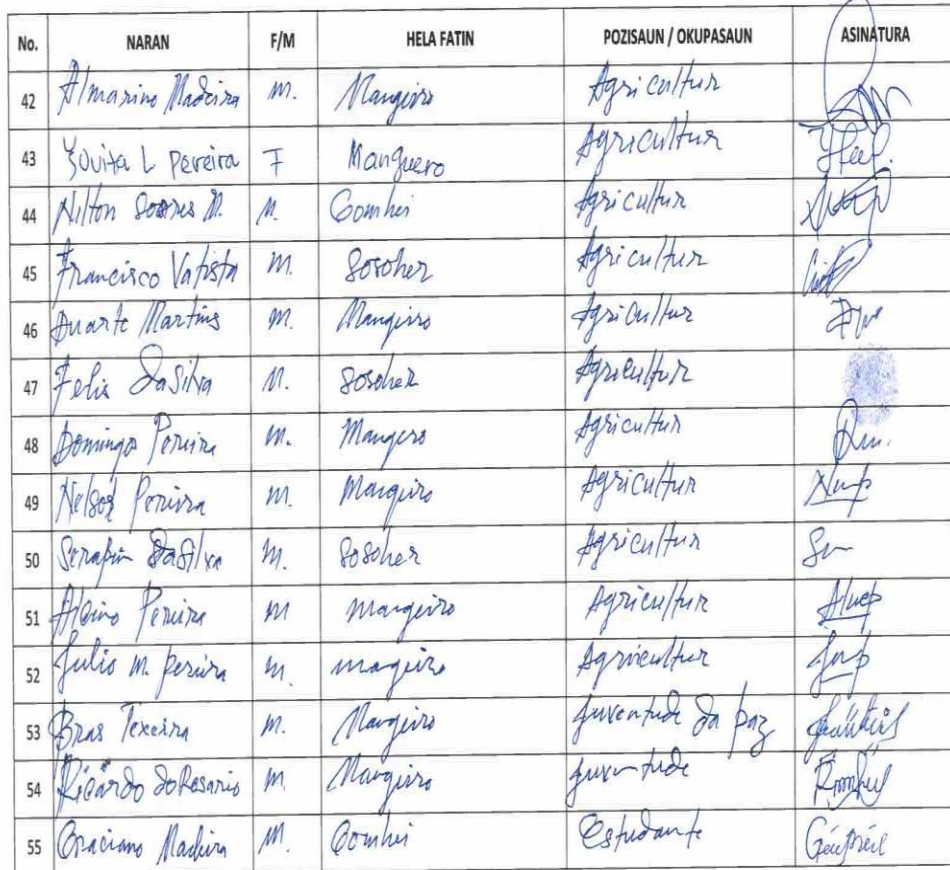 No. NARAN F/M HELA FATIN POZISAUN / OKUPASAUN ASINATURA
42 Almarino Madeira M. Mangeiro Agricultur
43 Jovita L Pereira F Manguero Agricultur
44 Nilton Soares M. M. Comhei Agricultur
45 Francisco Vatista M. Sosoher Agricultur
46 Duarte Martins M. Mangeiro Agricultur
47 Felix Dasilva M. Sosoher Agricultur
48 Domingo Pereira M. Mangero Agricultur
49 Nelson Pereira M. Mangeiro Agricultur
50 Serafin Dasilva M. Sosoher Agricultur
51 Albino Pereira M Mangeiro Agricultur
52 Julio M. Pereira M. Mageiro Agricultur
53 Bras Texeira M. Mangeiro Juventude da paz
54 Ricardo doRosario M. Mangeiro Juventude
55 Graciano Madeira M. Comhei Estudante